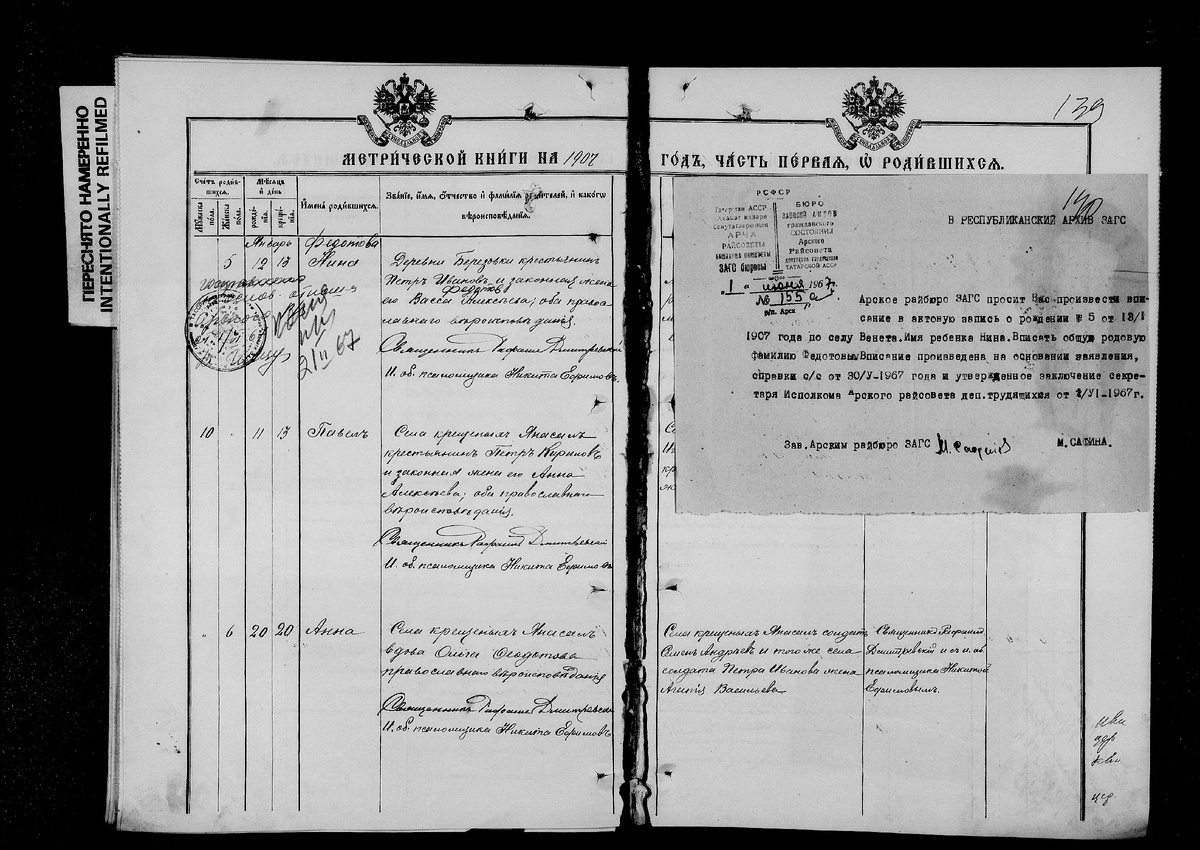 ПЕРЕСНЯТО НАМЕРЕННО
INTENTIONALLY REFILMED
139
МЕТРИ́ЧЕСКОЙ КНИ́ГИ НА 1907
ГОДЪ, ЧА́СТЬ ПЕ́РВАЯ, Ѡ РОДИ́ВШИХСЯ.
Счетъ роди́вшихся.
Мужеска пола.
Женска пола.
Мѣсяцъ и день
рожденія.
крещенія.
Имена родившихся.
Званіе, имя, отчество и фамилія родителей, и какого вѣроисповѣданія.
Январь
Федотова
5 12 13 Нина
Деревни Березовки крестьянинъ
Петръ Ивановъ и законная жена
Федотовы
его Васса Алексѣева; оба право-
славнаго вѣроисповѣданія.
Священникъ Рафаилъ Дмитревскій
И. об. псаломщика Никита Ефримовъ.
21 II 67
10 " 11 13 Павелъ
Села крещеныхъ Янасалъ
крестьянинъ Петръ Кириловъ
и законная жена его Анна
Алексѣева; оба православнаго
вѣроисповѣданія.
Священникъ Рафаилъ Дмитревскій
И. об. псаломщика Никита Ефримовъ
" 6 20 20 Анна
Села крещеныхъ Янасалъ
вдова Ольга Ѳеодотова
православнаго вѣроисповѣданія
Священникъ Рафаилъ Дмитревскій
И. об. псаломщика Никита Ефримовъ
Села крещеныхъ Янасалъ солдатъ
Семенъ Андреевъ и того же села
солдата Петра Иванова жена
Агапія Васильева
Священникъ Рафаилъ
Дмитревскій съ и. об.
псаломщика Никитой
Ефримовымъ.
РСФСР
Татарстан АССР
АРЧА
РАЙСОВЕТЫ
ЗАГС бюросы
БЮРО
ЗАПИСЕЙ АКТОВ
гражданского
СОСТОЯНИЯ
Арского
Райсовета
депутатов трудящихся
ТАТАРСКОЙ АССР
1 " июня 1967 г.
№ 155а
р/п. Арск
140
В РЕСПУБЛИКАНСКИЙ АРХИВ ЗАГС
Арское райбюро ЗАГС просит Вас произвести впи-
сание в актовую запись о рождении № 5 от 13/I
1907 года по селу Венета.Имя ребенка Нина.Вписать общую родовую
фамилию Федотовы.Вписание произведена на основании заявления,
справки с/с от 30/У-1967 года и утвержденное заключение секре-
таря Исполкома Арского райсовета деп.трудящихся от 1/УI-1967г.
Зав.Арским райбюро ЗАГС М. Сафина М.САФИНА.